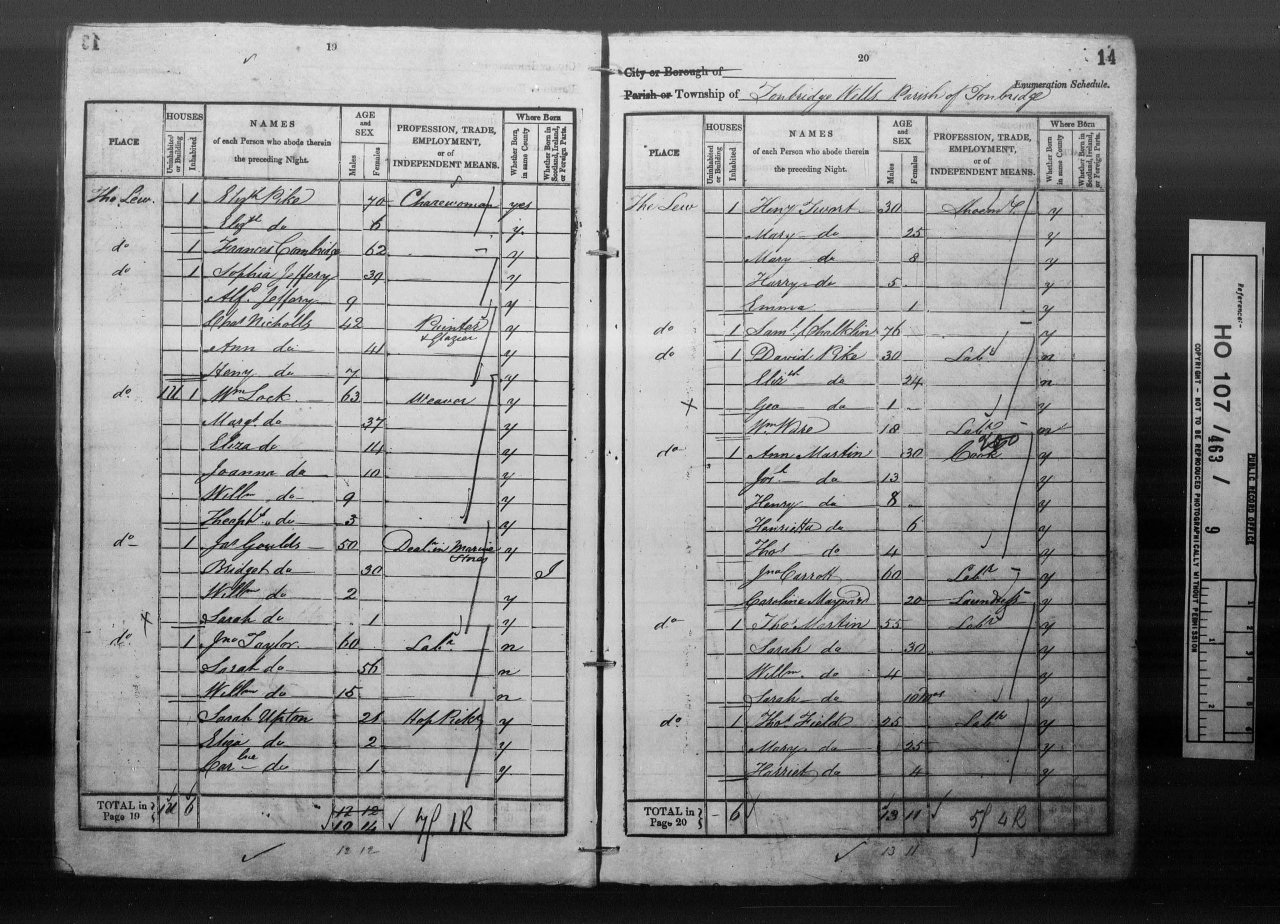 19
PLACE
HOUSES
Uninhabited or Building
Inhabited
NAMES
of each Person who abode therein
the preceding Night.
AGE and SEX
Males
Females
PROFESSION, TRADE,
EMPLOYMENT,
or of
INDEPENDENT MEANS.
Where Born
Whether Born in same County
Whether Born in Scotland, Ireland, or Foreign Parts.
The Lew. 1 Elizth Pike 70 Charewoman yes
Elizth do 6 y
do 1 Frances Combridge 62 y
do 1 Sophia Jeffery 39 y
Alfd Jeffery 9 y
Chas Nicholls 42 Painter & Glazier y
Ann do 41 y
Henry do 7 y
do 1 Wm Lock 63 Weaver y
Margt do 37 y
Eliza do 14 y
Joanna do 10 y
Willm do 9 y
do 3 y
do 1 Jas Goulds 50 Dealr in Marine Stores y
Bridget do 30 I
Willm do 2 y
Sarah do 1 y
do 1 Jno Taylor 60 Labr n
Sarah do 56
Willm do 15 n
Sarah Upton 21 Hop Picker y
Eliza do 2 y
Carline do 1 y
TOTAL in Page 19 6 12 12
10 14
1R
12 12
20
14
City or Borough of
Enumeration Schedule.
Parish or Township of Tonbridge Wells Parish of Tonbridge
PLACE
HOUSES
Uninhabited or Building
Inhabited
NAMES
of each Person who abode therein
the preceding Night.
AGE and SEX
Males
Females
PROFESSION, TRADE,
EMPLOYMENT,
or of
INDEPENDENT MEANS.
Where Born
Whether Born in same County
Whether Born in Scotland, Ireland, or Foreign Parts.
The Lew 1 Heny 30 y
Mary do 25 y
Mary do 8 y
Harry do 5 y
Emma 1 y
do 1 Saml Chalklin 76 y
do 1 David Pike 30 Labr n
Elizth do 24 n
Geo do 1 y
Wm Ware 18 Labr n
do 1 Ann Martin 30 Cook y
Josh do 13 y
Henry do 8 y
Henrietta do 6 y
Thos do 4 y
Jno Carrott 60 Labr y
Caroline Maynard 20 Laundress y
do 1 Thos Martin 55 Labr y
Sarah do 30 y
Willm do 4 y
Sarah do 10 Mos y
do 1 Thos Field 25 Labr y
Mary do 25 y
Harriet do 4 y
TOTAL in Page 20 - 6 13 11 5f 4R
13 11
Reference:-
HO 107 / 463 / 9
PUBLIC RECORD OFFICE
COPYRIGHT - NOT TO BE REPRODUCED PHOTOGRAPHICALLY WITHOUT PERMISSION